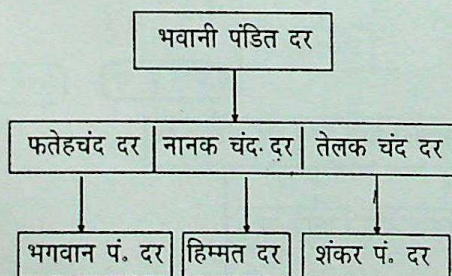 भवानी पंडित दर
फतेहचंद दर नानक चंद· दर तेलक चंद दर
भगवान पं॰ दर हिम्मत दर शंकर पं॰ दर